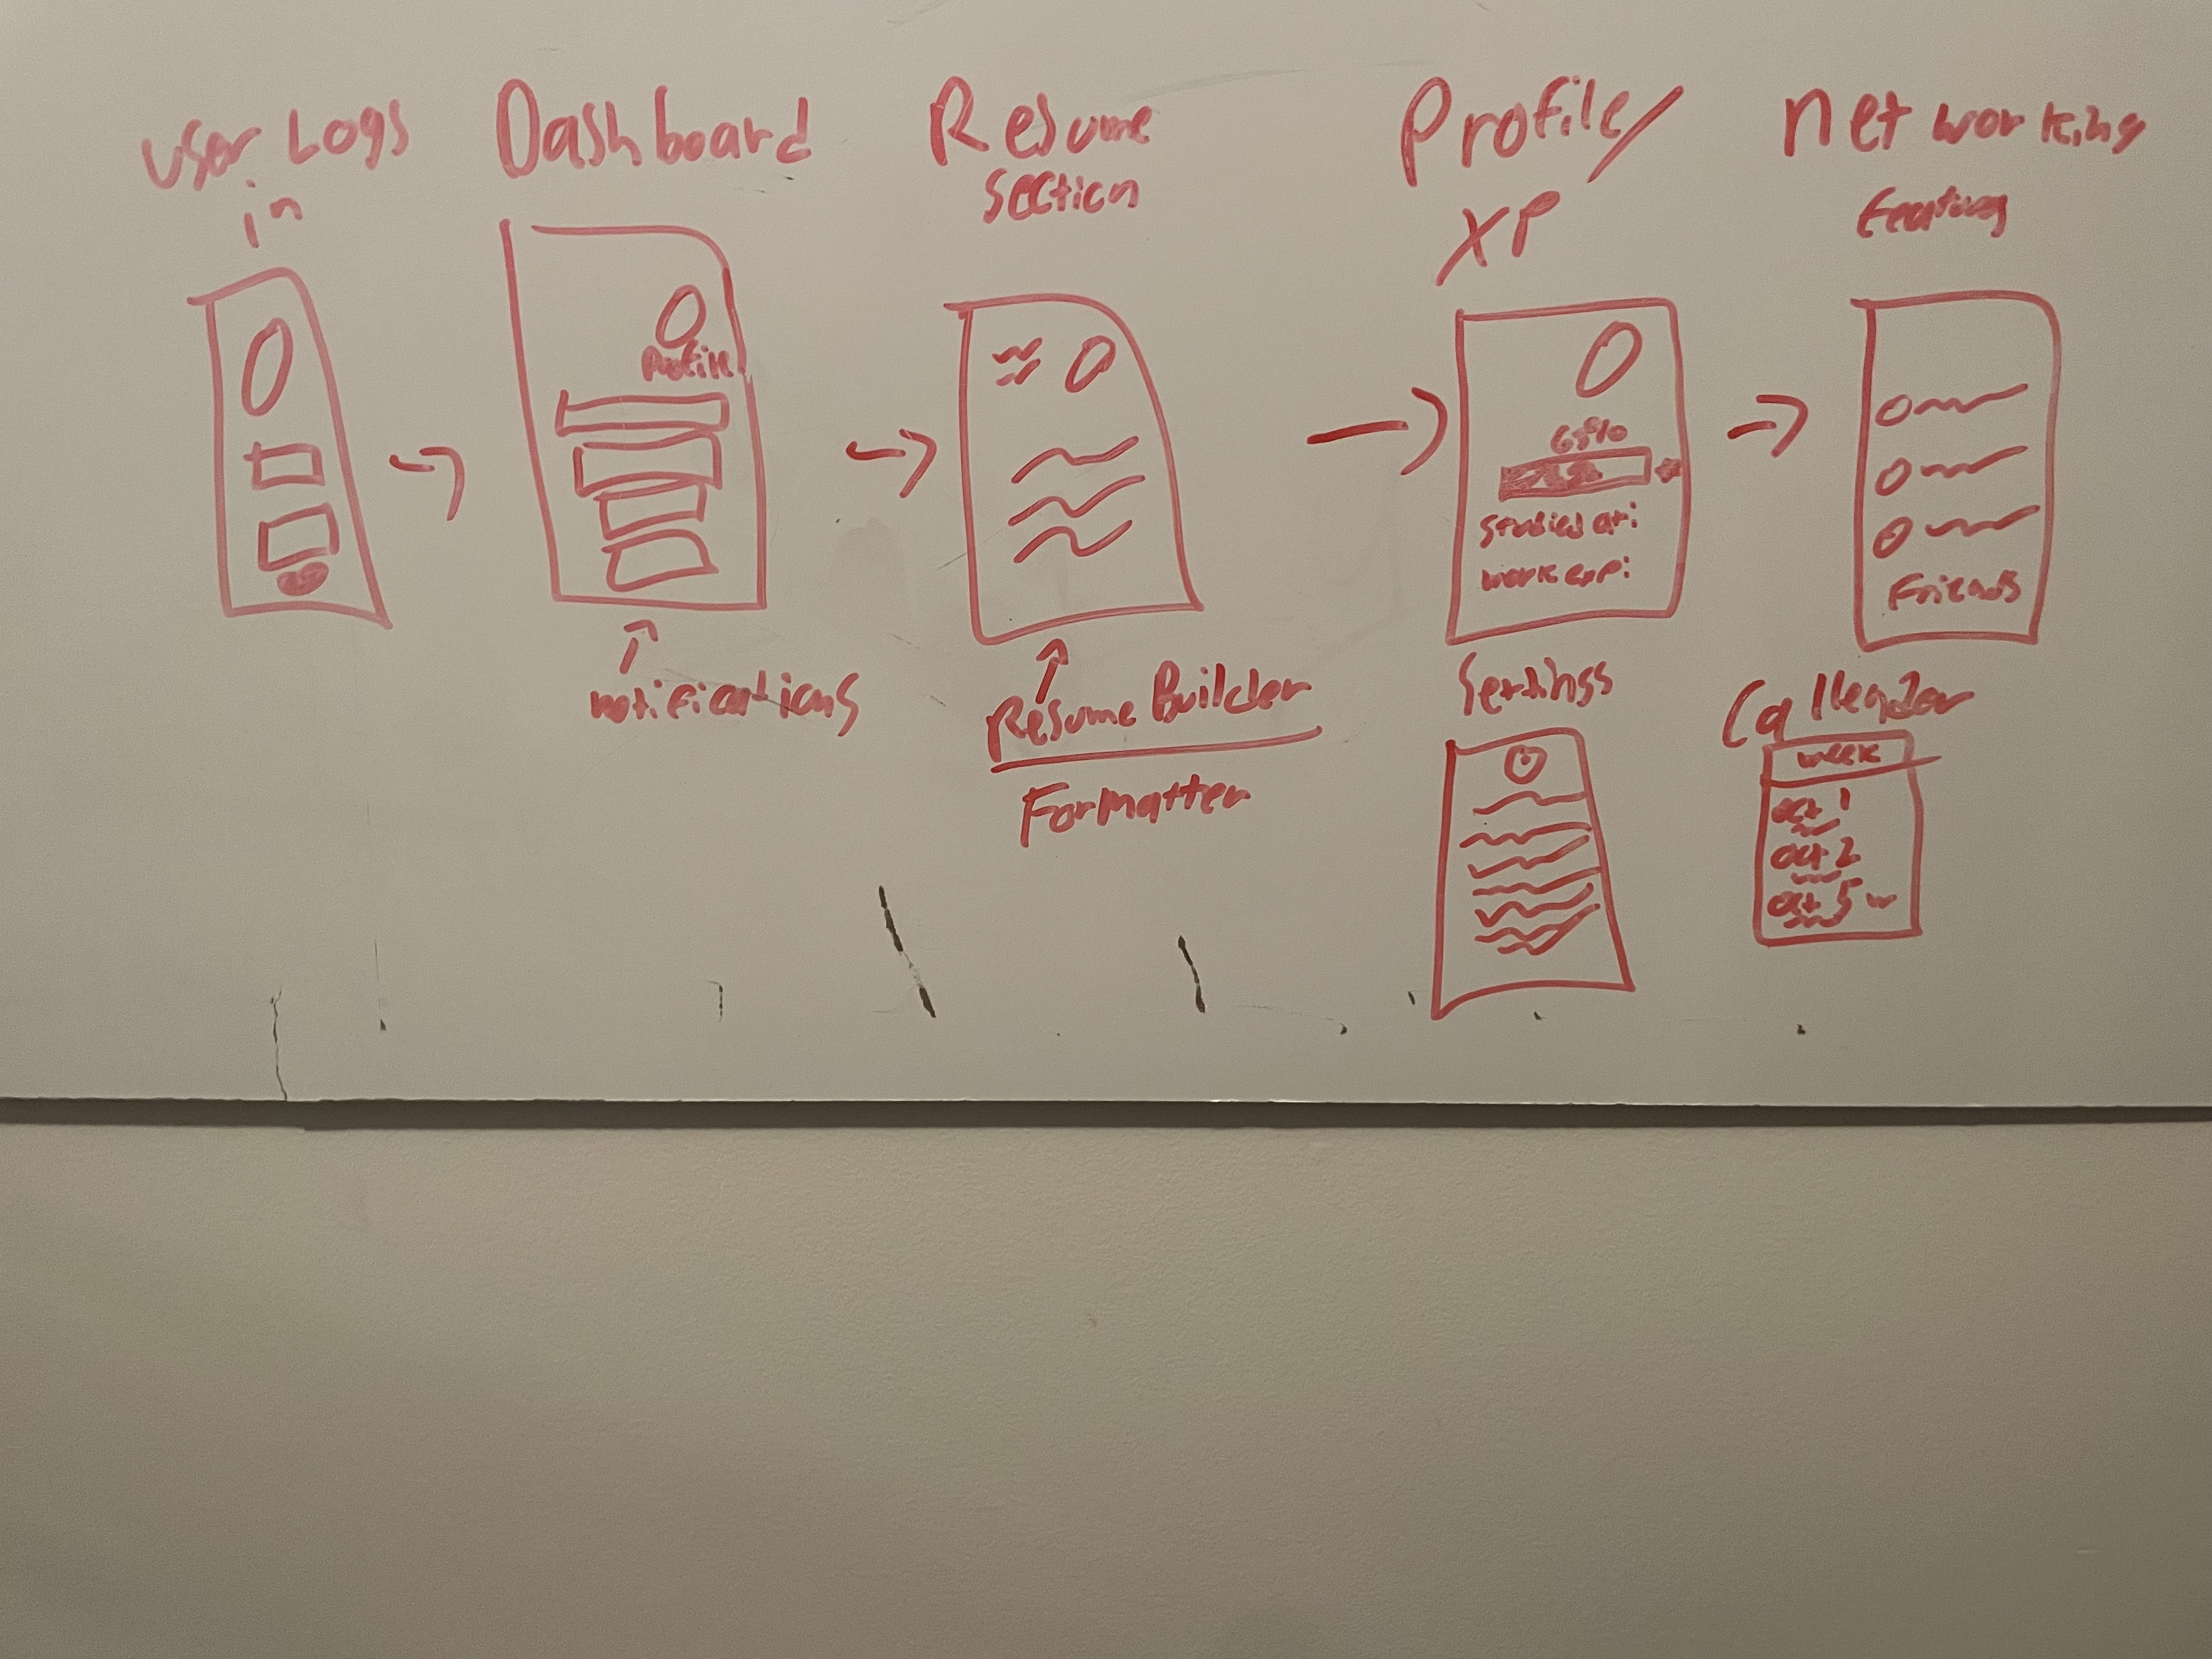 User Logs
in
Dashboard
Profile
notifications
Resume
Section
Resume Builder
Formatter
Profile/
XP
Studied at:
work exp:
Networking
Friends
Settings
Callender
week
oct 1
oct 2
oct 5